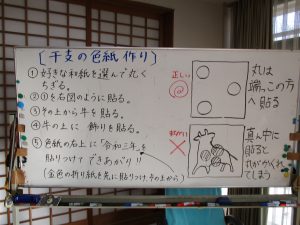 [干支の色紙作り]
①好きな和紙を選んで丸く
ちぎる。
②①を右図のように貼る。
③その上から牛を貼る。
④牛の上に 飾りを貼る。
⑤色紙の右上に「令和三年」を
貼りつけて できあがり!!
(金色の折り紙を先に貼りつけ、その上から)
正しい
丸は
端っこの方
へ貼る
まちがい
×
真ん中に
貼ると
丸がかくれて
しまう